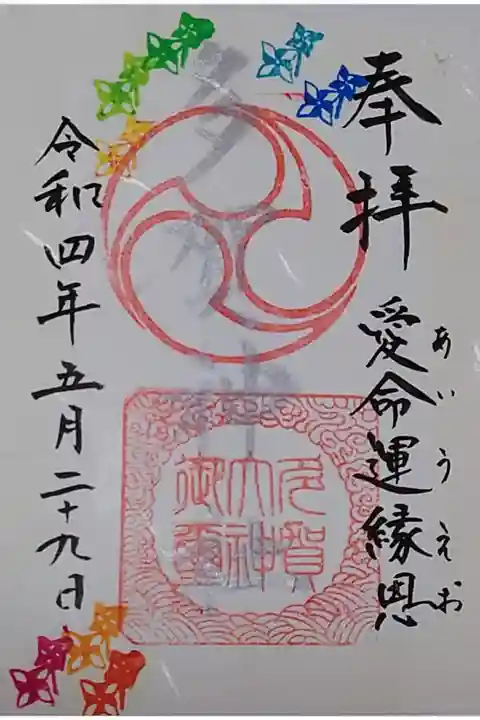 奉拝
愛命運縁恩
あいうえお
多賀神社
多賀
大神
御璽
令和四年五月二十九日